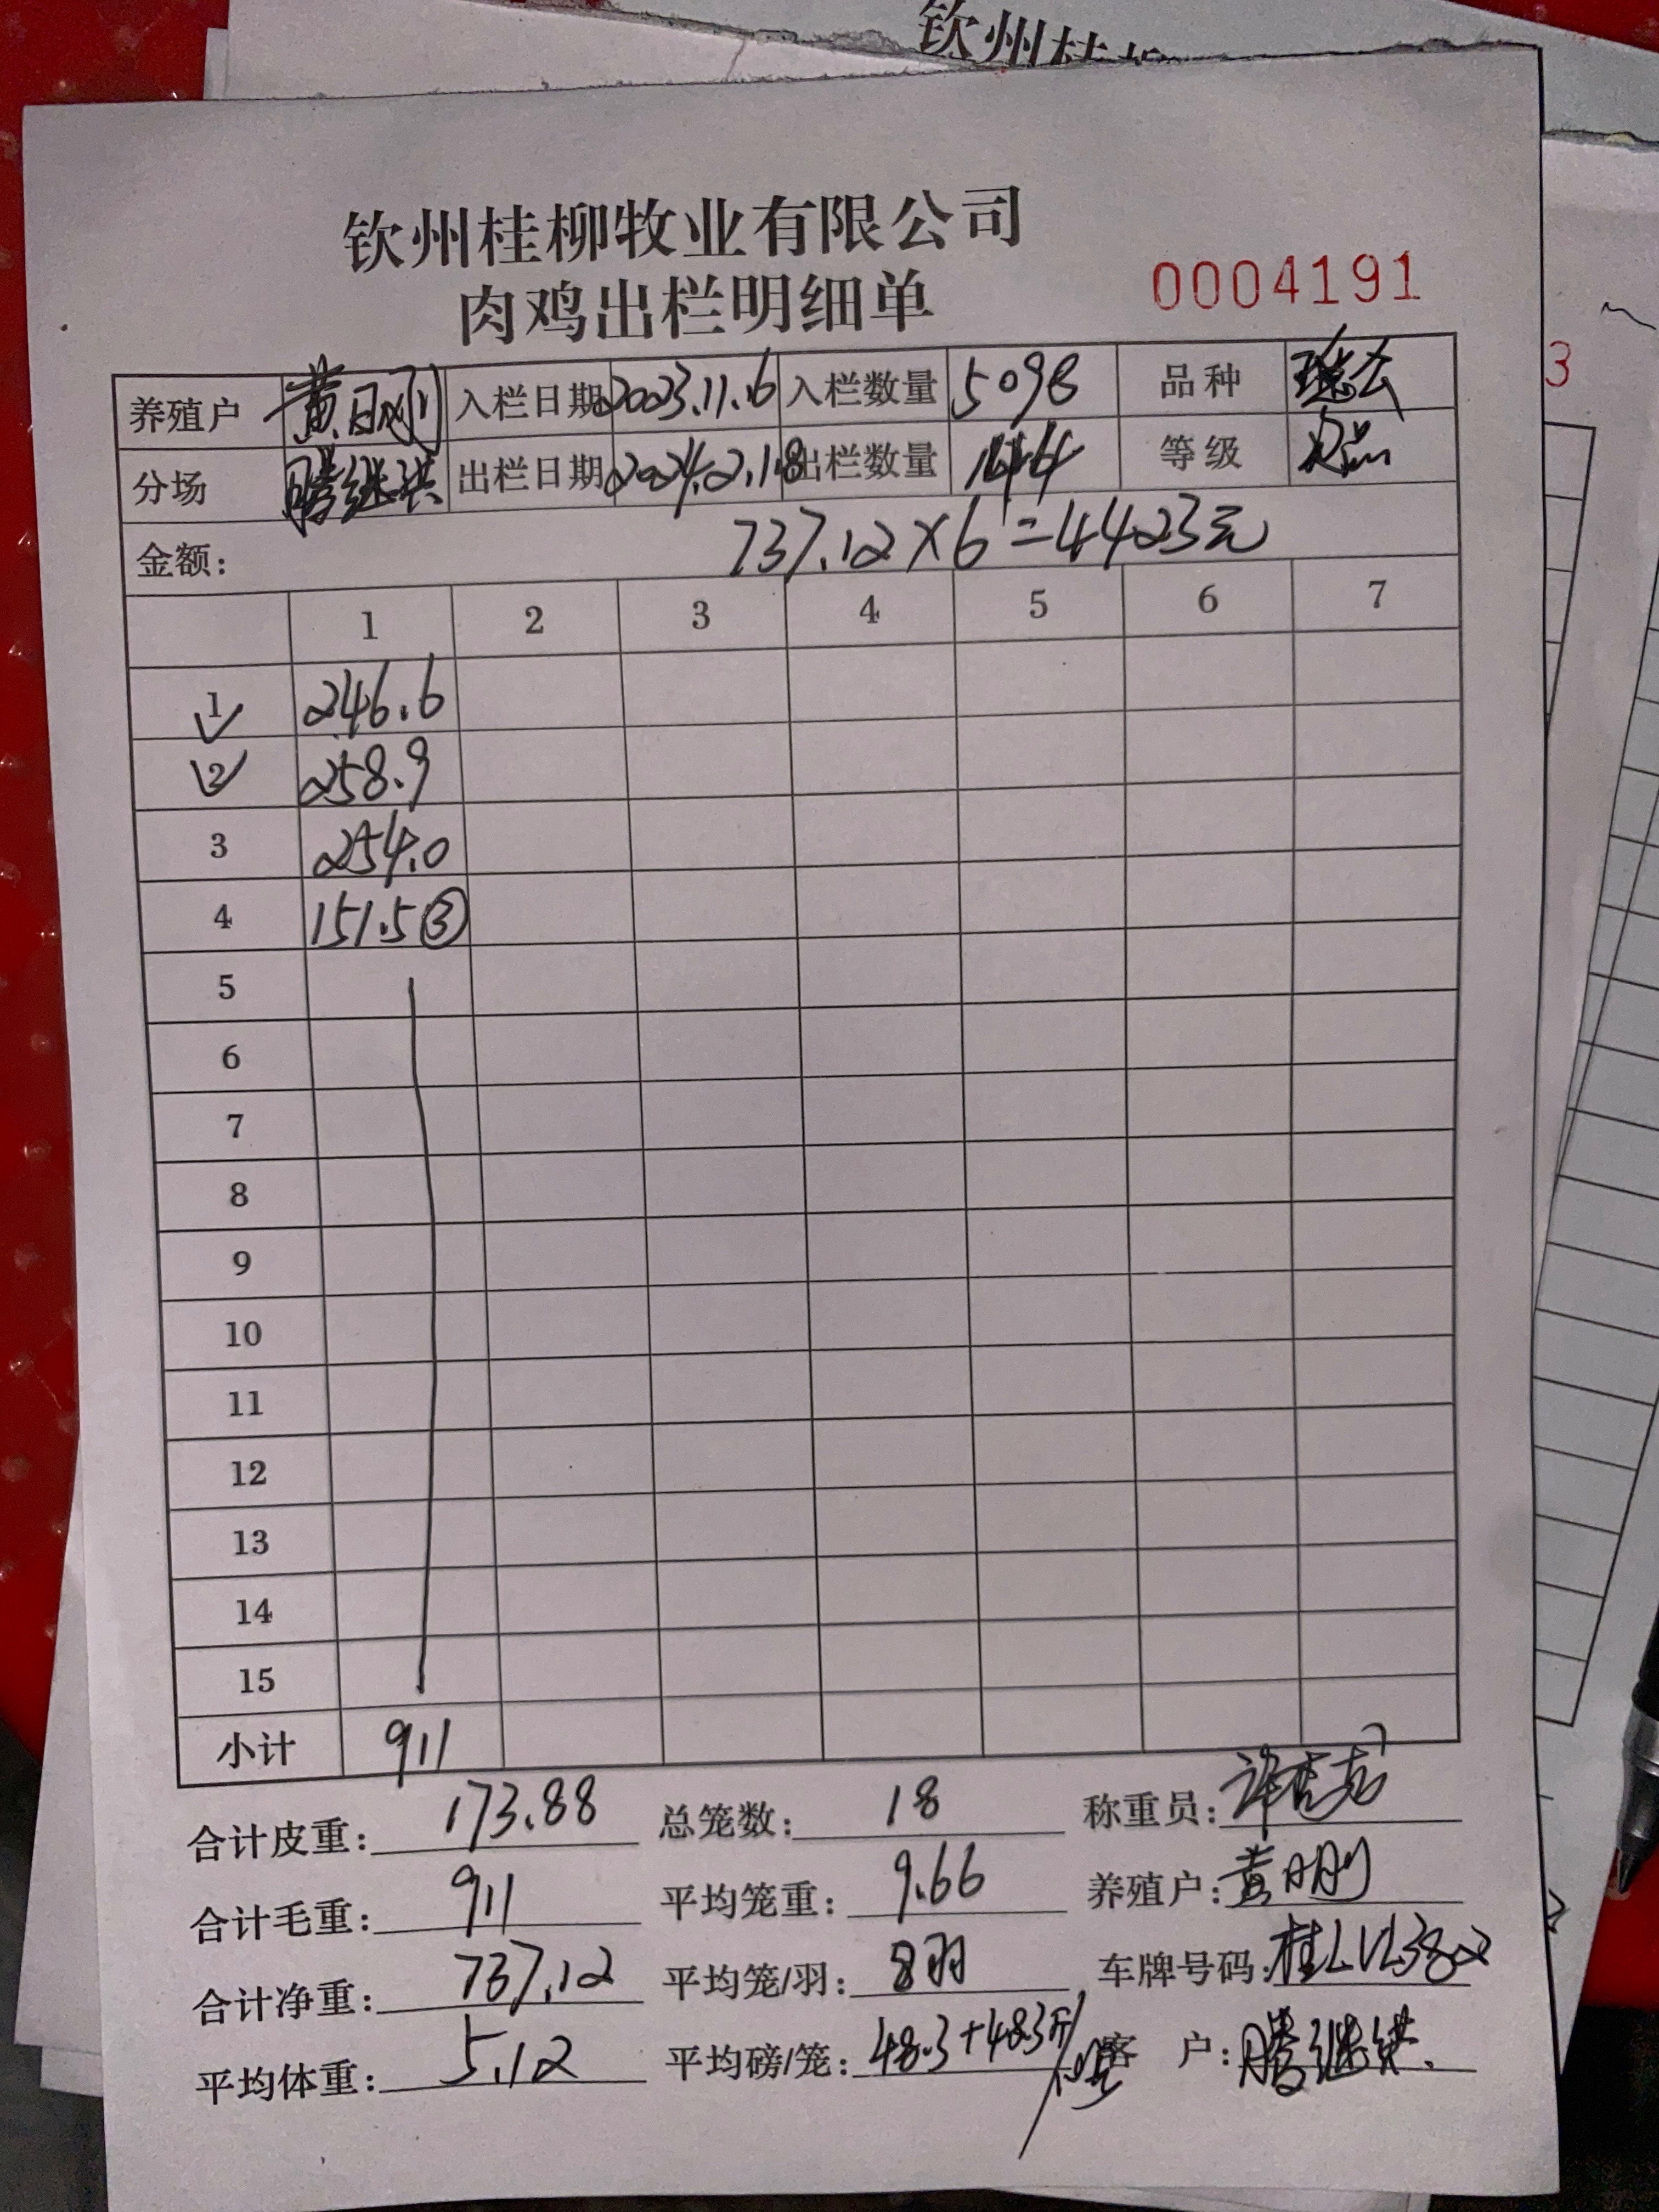 钦州桂柳
钦州桂柳牧业有限公司
肉鸡出栏明细单
0004191
3
养殖户 黄日刚 入栏日期 2023.11.6 入栏数量 5098 品种
分场 腾继洪 出栏日期 2024.2.18 出栏数量 144 等级 次品
金额: 737.12×6=4423元
1 2 3 4 5 6 7
1 246.6
2 258.9
3 254.0
4 151.5 ③
5
6
7
8
9
10
11
12
13
14
15
小计 911
合计皮重: 173.88 总笼数: 18 称重员:
合计毛重: 911 平均笼重: 9.66 养殖户: 黄日刚
合计净重: 737.12 平均笼/羽: 8羽 车牌号码:
平均体重: 5.12 平均磅/笼: 48.3+48.3斤/ 客 户: 腾继洪